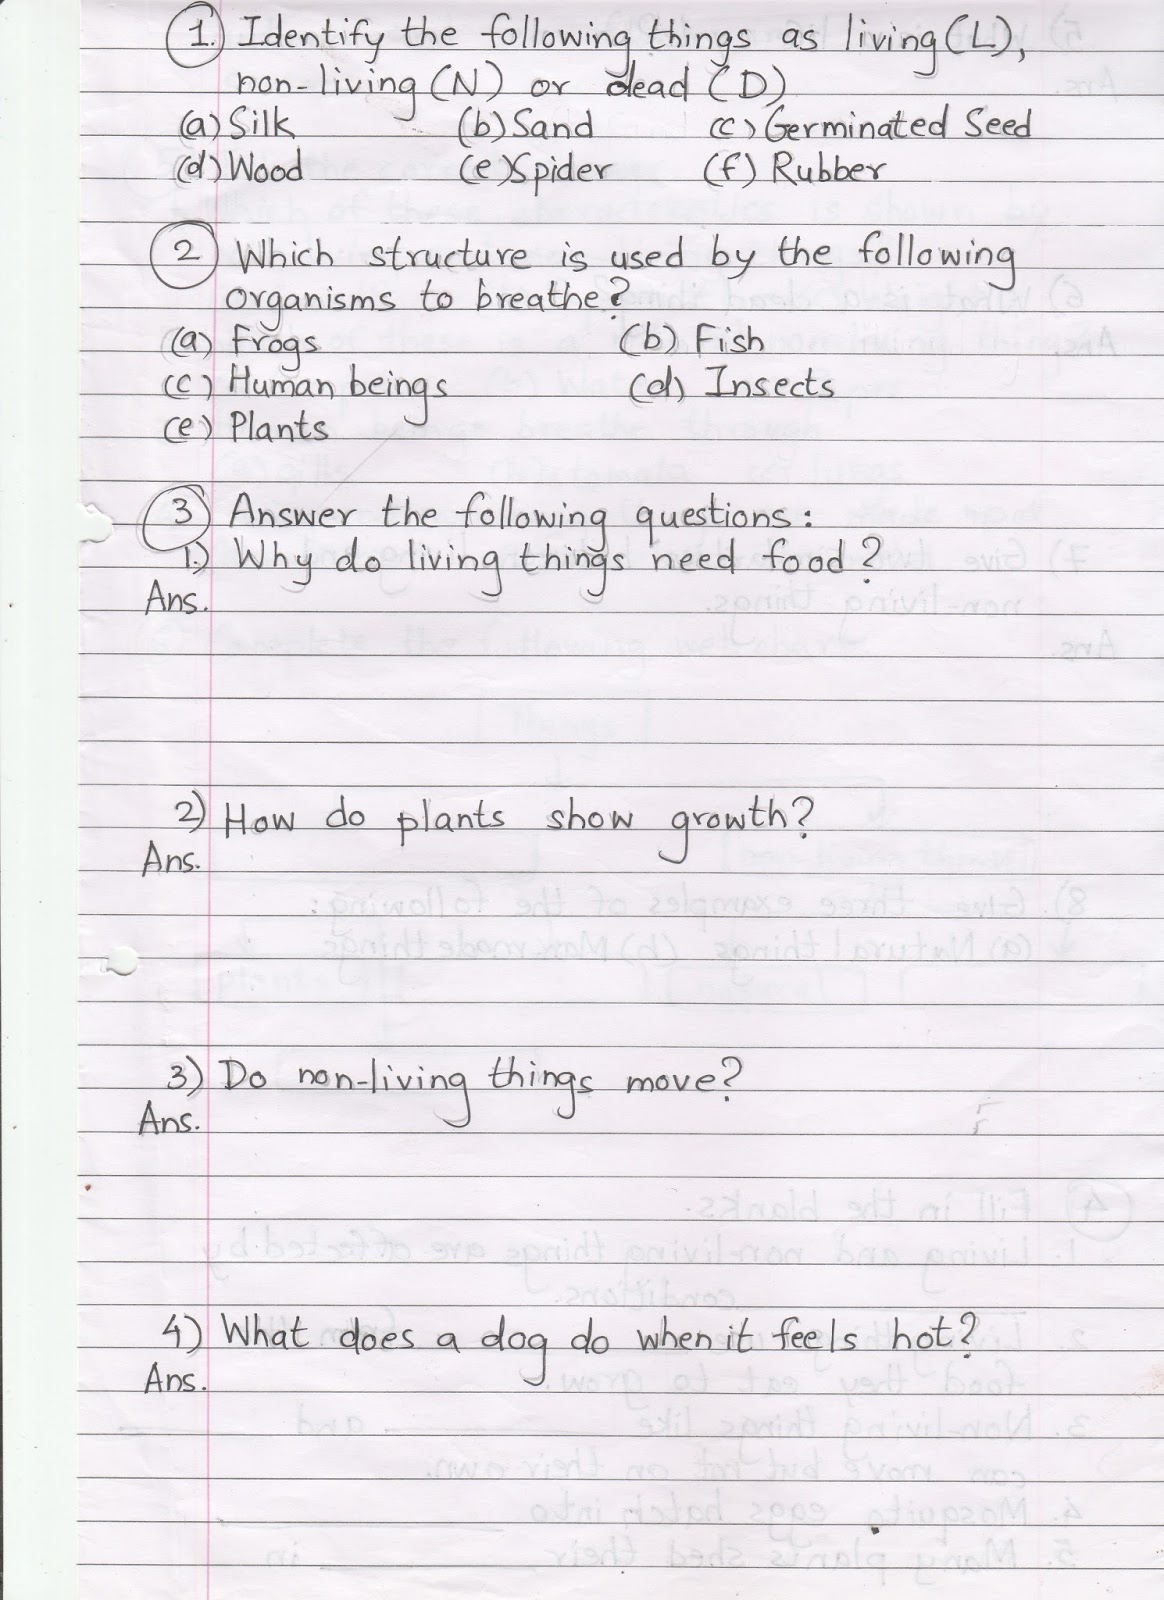 1. Identify the following things as living (L),
non-living (N) or dead (D)
(a) Silk (b) Sand (c) Germinated Seed
(d) Wood (e) Spider (f) Rubber
2 Which structure is used by the following
organisms to breathe?
(a) Frogs (b) Fish
(c) Human beings (d) Insects
(e) Plants
3 Answer the following questions:
1.) Why do living things need food?
Ans.
2) How do plants show growth?
Ans.
3) Do non-living things move?
Ans.
4) What does a dog do when it feels hot?
Ans.